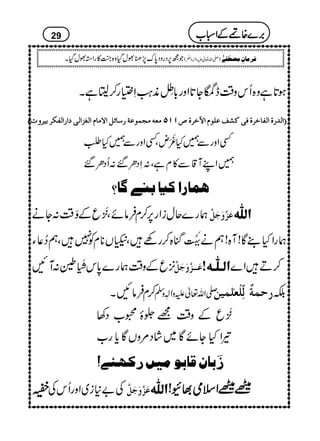 برے خاتمے کے اسباب
29
فرمانِ مصطفٰے (صلی اللہ تعالیٰ علیہ والہٖ وسلم) جو مجھ پر درود پاک پڑھنا بھول گیا وہ جنت کا راستہ بھول گیا۔
ہوتا ہے وہ اُس وقت ڈگمگا جاتا اور باطِل مذہب اختِیار کر لیتا ہے۔
(الدرة الفاخرة فی کشف علوم الآخرة ص ۵۱۱ معه مجموعة رسائل الامام الغزالی دارالفکر بیروت)
کسی اور سے ہمیں کیا غَرَض، کسی اور سے ہمیں کیا طلب
ہمیں اپنے آقا سے کام ہے، نہ اِدھر گئے نہ اُدھر گئے
ہمارا کیا بنے گا؟
اللہ عَزَّوَجَلَّ ہمارے حالِ زار پر کرم فرمائے، نَزع کے وقت نہ جانے
ہمارا کیا بنے گا! آہ! ہم نے بَہُت گناہ کر رکھے ہیں، نیکیاں نام کو نہیں ہیں، ہم دُعاء
کرتے ہیں اے اللہ! عَزَّوَجَلَّ نَزع کے وقت ہمارے پاس شَیاطین نہ آئیں
بلکہ رحمةٌ لِّلعٰلمین صلی اللہ تعالیٰ علیہ والہٖ وسلم کرم فرمائیں۔
نَزع کے وقت مجھے جلوۂ محبوب دکھا
تیرا کیا جائے گا میں شاد مروں گا یا رب
زَبان قابو میں رکھئے!
میٹھے میٹھے اسلامی بھائیو! اللہ عَزَّوَجَلَّ کی بے نیازی اور اُس کی خفیہ